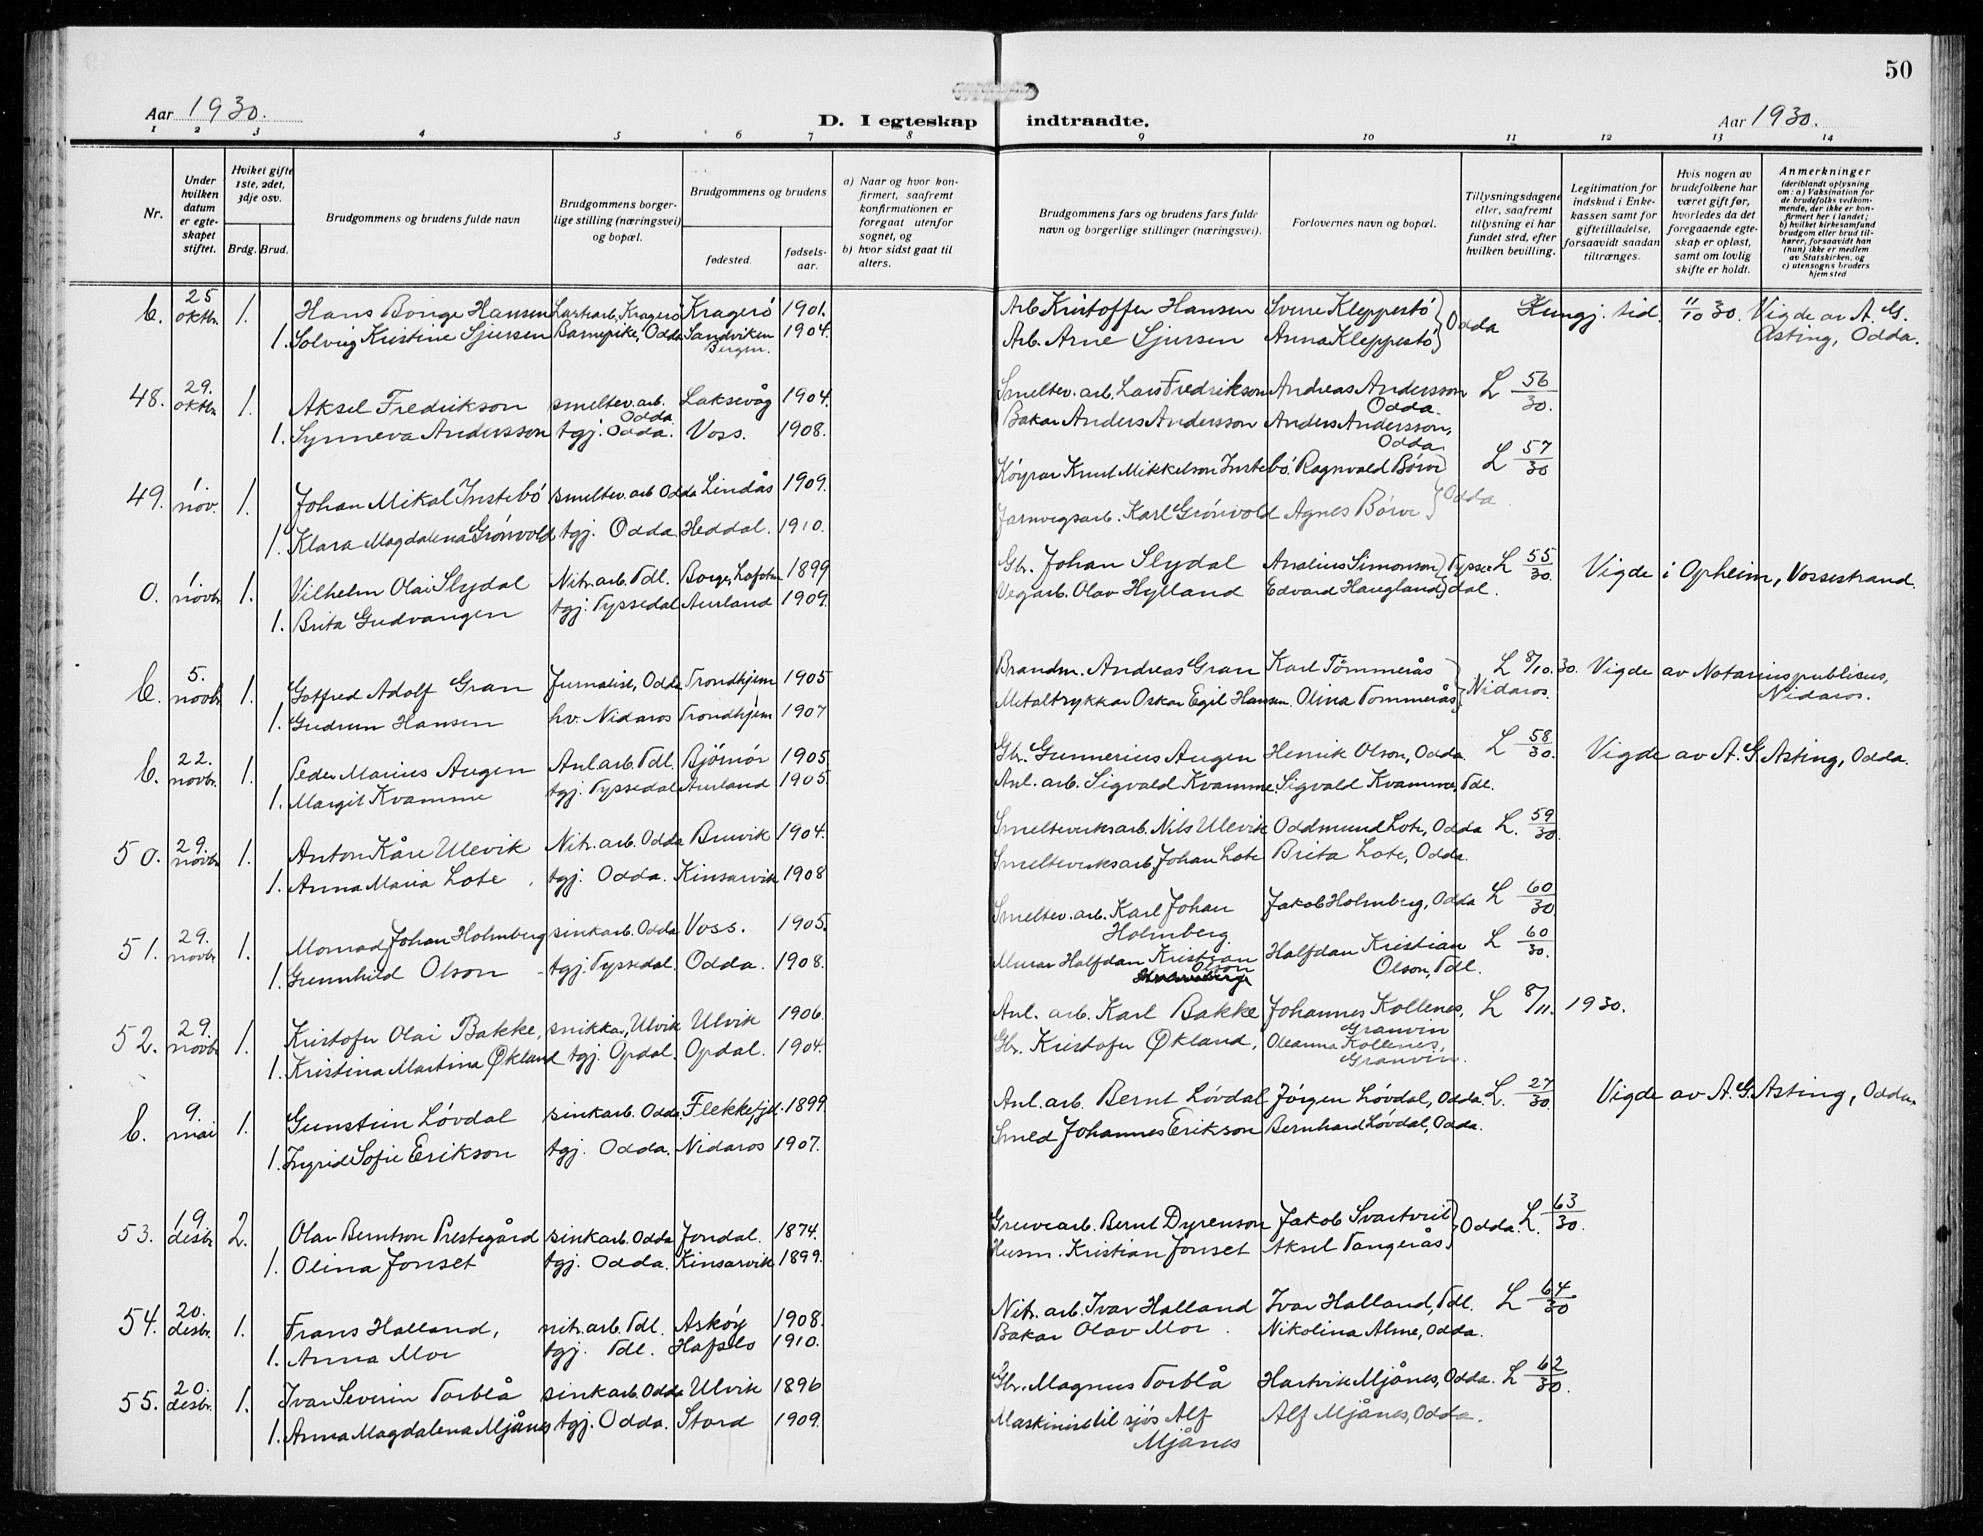 50
Aar 1930. D. I egteskap indtraadte. Aar 1930.
1 2 3 4 5 6 7 8 9 10 11 12 13 14
Nr.
Under hvilken datum er egteskapet stiftet.
Hvilket gifte 1ste, 2det, 3dje osv.
Brdg. Brud.
Brudgommens og brudens fulde navn
Brudgommens borgerlige stilling (næringsvei) og bopæl.
Brudgommens og brudens
fødested. fødselsaar.
a) Naar og hvor konfirmert, saafremt konfirmationen er foregaat utenfor sognet, og
b) hvor sidst gaat til alters.
Brudgommens fars og brudens fars fulde navn og borgerlige stillinger (næringsvei).
Forlovernes navn og bopæl.
Tillysningsdagene eller, saafremt tillysning ei har fundet sted, efter hvilken bevilling.
Legitimation for indskud i Enkekassen samt for giftetilladelse, forsaavidt saadan tiltrænges.
Hvis nogen av brudefolkene har været gift før, hvorledes da det foregaaende egteskap er opløst, samt om lovlig skifte er holdt.
Anmerkninger (deriblandt oplysning om: a) Vaksination for de brudefolks vedkommende, der ikke er konfirmert her i landet; b) hvilket kirkesamfund brudgom eller brud tilhører, forsaavidt han (hun) ikke er medlem av Statskirken, og c) utensogns bruders hjemsted
b. 25 oktbr. 1. Hans Borge Hansen Lastearb. Kragerö Kragerö 1901. Arb. Kristoffer Hansen Sverre Kleppestö Odda Kungj. tid. 11/10 30. Vigde av A. G.
1. Solvig Kristine Sjursen Barnepike, Odda Sandviken Bergen. 1904. Arb. Arne Sjursen Anna Kleppestö Asting, Odda.
48. 29. oktbr 1. Aksel Fredrikson smeltev. arb. Odda Laksevåg 1904. Smeltev. arb. Lars Fredrikson Andreas Andersson Odda. L 56/30.
1. Synneva Andersson tgj. Odda. Voss. 1908. Bakar Anders Andersson Anders Andersson, Odda
49. 1. nov. 1. Johan Mikal Instebö smeltev. arb Odda Lindås 1909. Köyrar Knut Mikkelson Instebö. Ragnvald Börve Odda L 57/30
1. Klara Magdalena Grönvold tgj. Odda Heddal. 1910. Jarnvegsarb. Karl Grönvold Agnes Börve
0. 1. novbr 1. Vilhelm Olai Slydal Nitr. arb. Tdl. Borge, Lofoten 1899 Gbr. Johan Slydal Analius Simonson Tyssedal. L 55/30. Vigde i Opheim, Vossestrand.
1. Brita Gudvangen tgj. Tyssedal Aurland 1909. Vegarb. Olav Hylland Edvard Haugland
b. 5. novbr 1. Gotfred Adolf Gran Jurnalist, Odda Trondhjem 1905 Brandm. Andreas Gran Karl Tömmerås Nidaros. L 8/10. 30. Vigde av Notarius publicus,
1. Gudrun Hansen hv. Nidaros Trondhjem 1907 Metaltrykkar Oskar Egil Hansen Olina Tömmerås Nidaros.
b. 22. novbr. 1. Peder Marius Augen Anl. arb. Tdl. Björnör 1905. Gbr. Gunnerius Augen Henrik Olson, Odda. L 58/30. Vigde av A. G Asting, Odda.
1. Margit Kvamme tgj. Tyssedal Aurland 1905. Anl. arb. Sigvald Kvamme. Sigvald Kvamme, Tdl.
50. 29. novbr 1. Anton Kåre Ulevik Nitr. arb. Odda Bruvik 1904. Smelteverksarb. Nils Ulevik Oddmund Lote, Odda L. 59/30.
1. Anna Maria Lote tgj. Odda. Kinsarvik 1908 Smelteverksarb. Johan Lote Brita Lote, Odda.
51. 29. novbr. 1. Monrad Johan Holmberg sinkarb. Odda Voss. 1905. Smeltev. arb. Karl Johan Holmberg. Jakob Holmberg, Odda L 60/30
1. Gunnhild Olson tgj. Tyssedal. Odda. 1908. Murar Halfdan Kristian Olson Halfdan Kristian Olson, Tdl. L 60/30.
52. 29. novbr 1. Kristofer Olai Bakke, snikkar, Ulvik Ulvik 1906. Anl. arb. Karl Bakke Johannes Kollenes, Granvin L 8/11. 1930.
1. Kristina Martina Økland tgj. Opdal. Opdal. 1904. Gbr. Kristofer Økland, Oleanna Kollenes, Granvin.
b. 9. mai 1. Gunstein Lövdal sinkarb. Odda. Flekkefjd. 1899. Anl. arb. Bernt Lövdal Jörgen Lövdal, Odda. L. 27/30 Vigde av A. G. Asting, Odda
1. Ingrid Sofie Erikson tgj. Odda. Nidaros 1907. Smed Johannes Erikson Bernhard Lövdal, Odda.
53. 19 desbr 2. Olav Berntson Prestegård sinkarb. Odda Jondal. 1874. Gruvearb. Bernt Dyrenson Jakob Svartveit Odda. L. 63/30.
1. Olina Jonset tgj. Odda. Kinsarvik 1899. Husm. Kristian Jonset Aksel Tangerås
54. 20. desbr. 1. Frans Halland, nitr. arb. Tdl. Asköy 1908. Nitr. arb. Ivar Halland Ivar Halland, Tdl. L 64/30
1. Anna Mor tgj. Tdl. Hafslo 1910. Bakar Olav Mor. Nikolina Alme, Odda.
55. 20. desbr. 1. Ivar Severin Torblå sinkarb. Odda Ulvik 1896 Gbr. Magnus Torblå Hartvik Mjånes, Odda. L 62/30.
1. Anna Magdalena Mjånes tgj. Odda. Stord 1909. Maskinist til sjös Alf Mjånes Alf Mjånes, Odda.